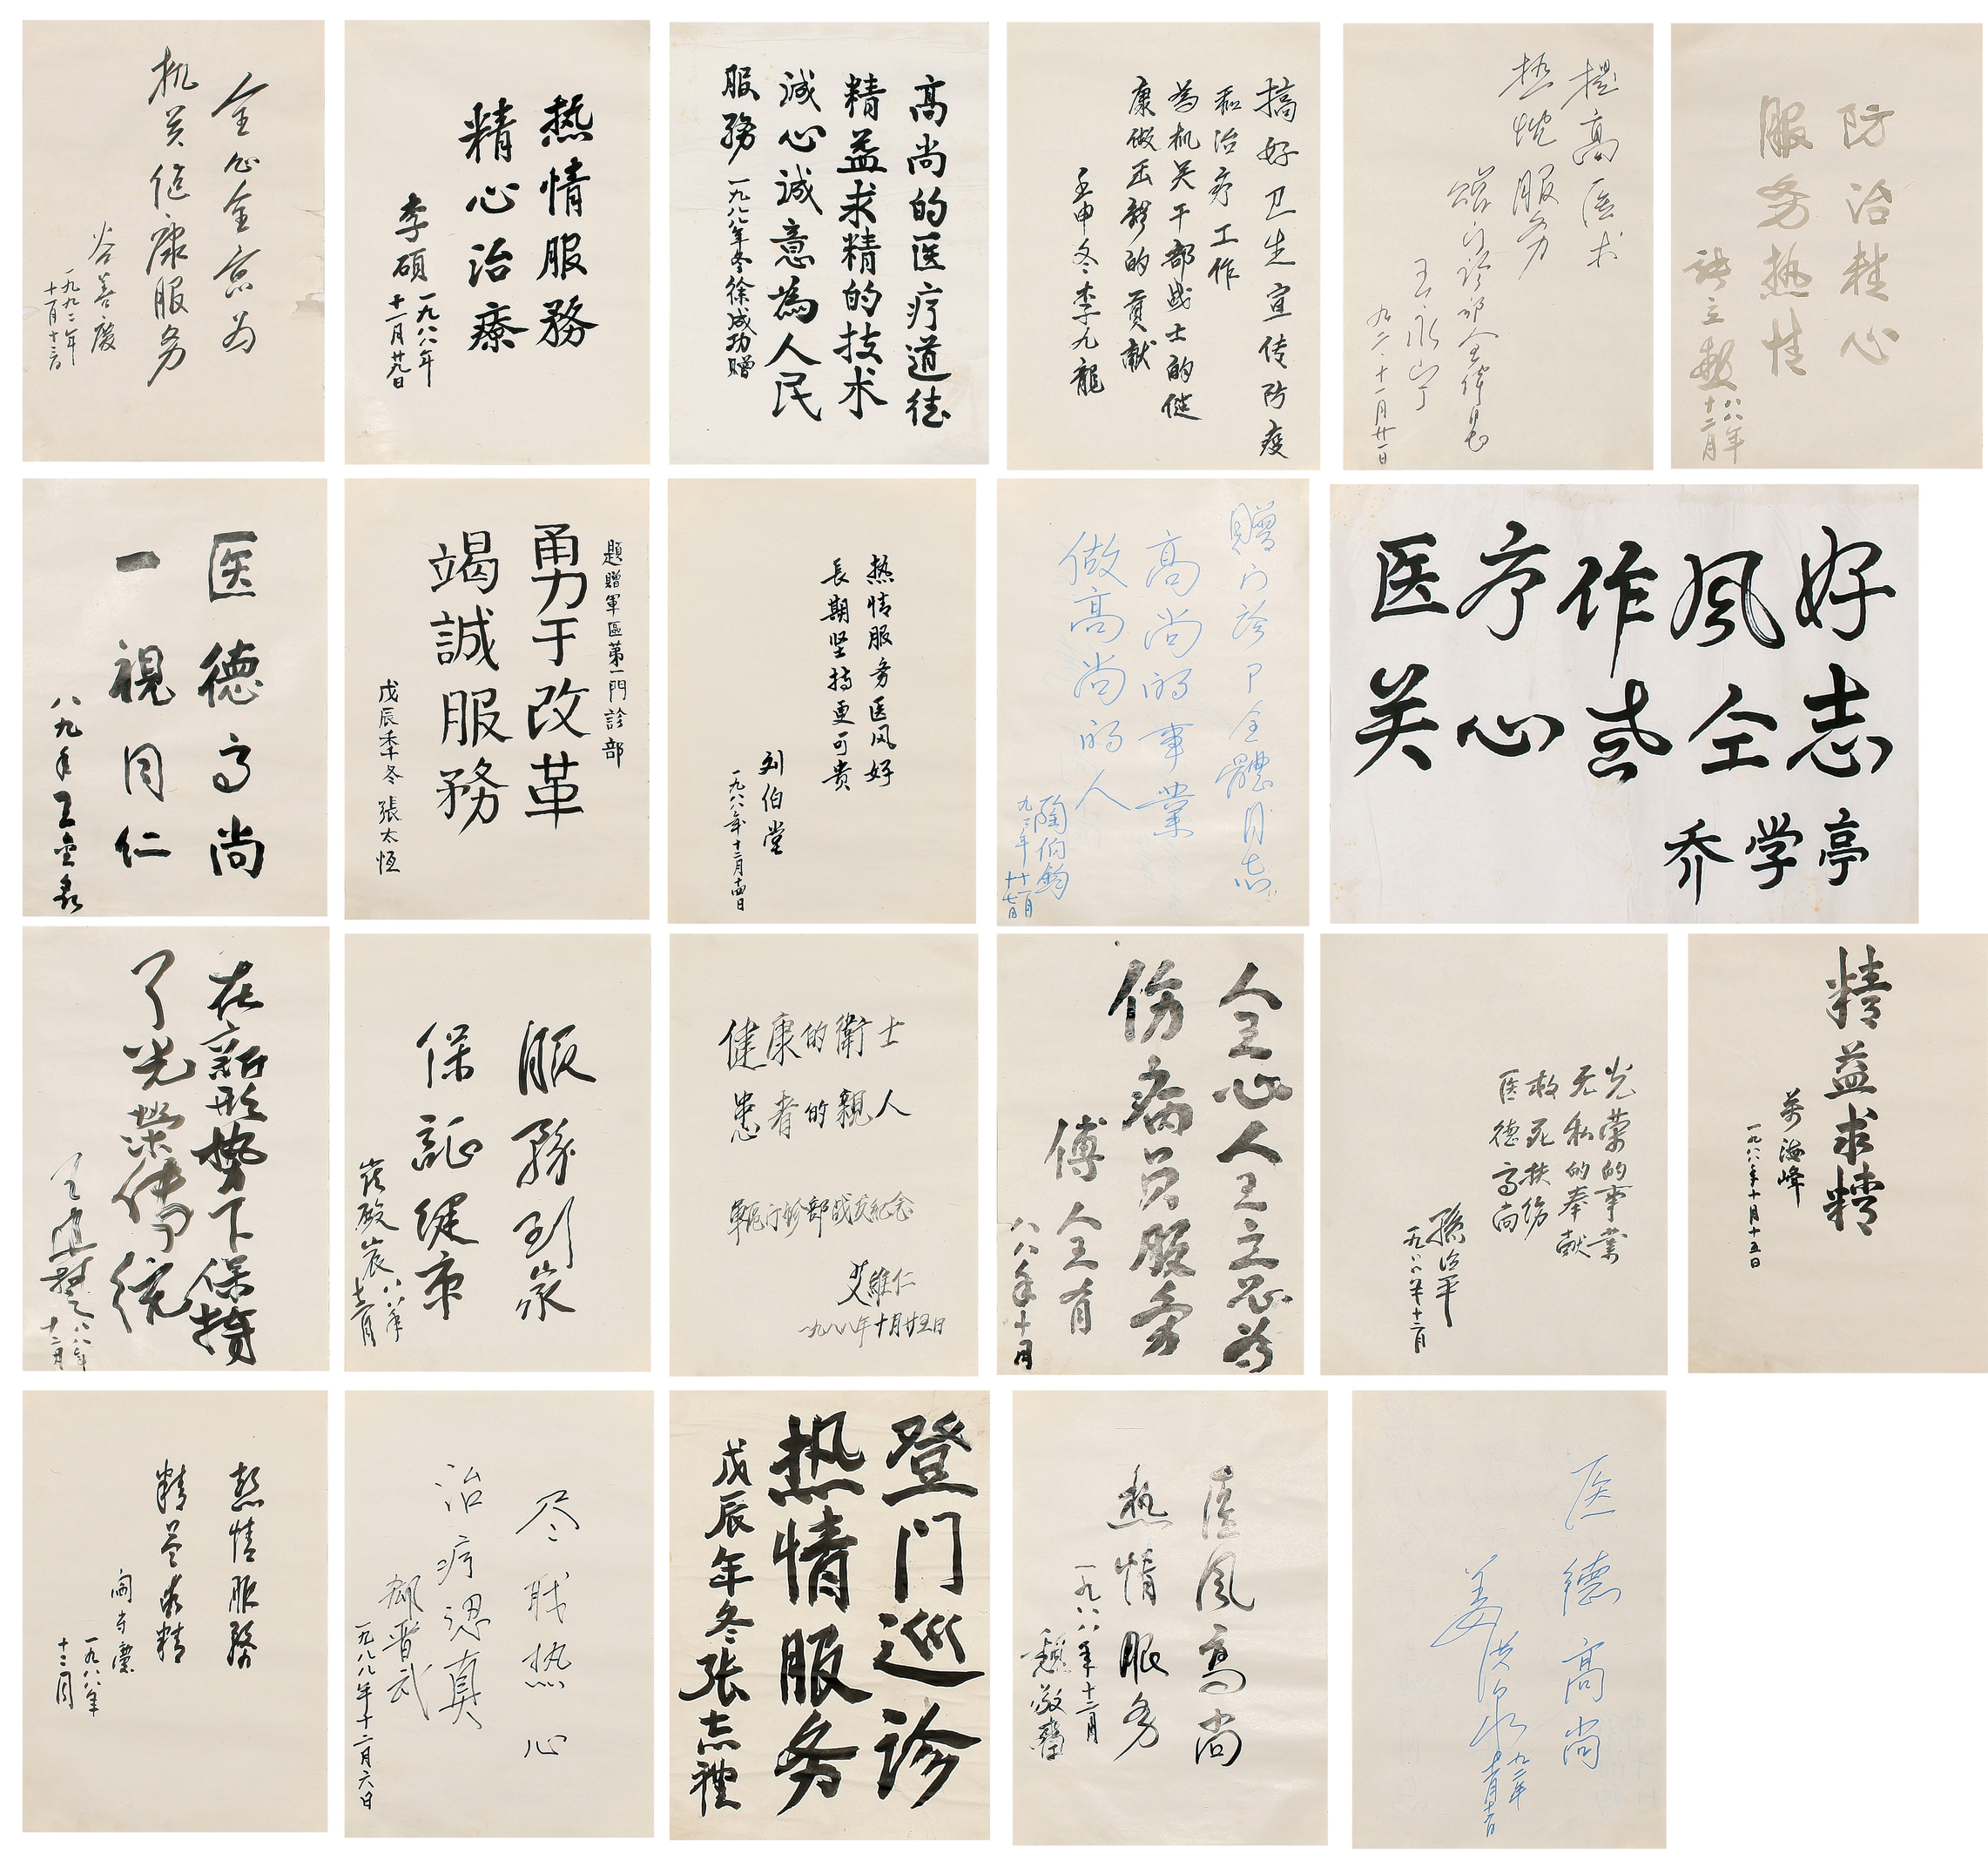 全心全意为
机关健康服务
谷善庆
一九九二年
十一月十三日
热情服務
精心治療
李碩
一九八八年
十一月廿九日
高尚的医疗道德
精益求精的技术
誠心誠意為人民
服務
一九八八年冬徐成功赠
搞好卫生宣传防疫
和治疗工作
為机关干部战士的健
康做出新的貢献
壬申冬李九龍
提高医术
热忱服务
赠门诊部全体同志
王永宁
九二·十一月廿一日
防治精心
服务热情
八八年
十二月
医德高尚
一視同仁
八九年
题赠軍區第一門診部
勇于改革
竭誠服務
戊辰季冬 張太恒
热情服务医风好
長期坚持更可贵
刘伯堂
一九八八年十二月十四日
赠门诊部全體同志
高尚的事業
做高尚的人
陶伯钧
九二年
十一月
十七日
医疗作风好
关心革命同志
乔学亭
在新形势下保持
了光荣传统
八八年
十二月
服務到家
保証健康
八八年
十二月
健康的衛士
患者的親人
軍区门诊部成立纪念
艾維仁
一九八八年十月廿五日
全心全意为
伤病员服务
傅全有
八八年十月
光荣的事業
无私的奉献
救死扶伤
医德高尚
孫治平
一九八八年十二月
精益求精
萬海峰
一九八八年十月十五日
热情服務
精益求精
一九八八年
十二月
尽职热心
治疗认真
郗晋武
一九八八年十二月六日
登门巡诊
热情服务
戊辰年冬張志禮
医风高尚
热情服务
一九八八年十二月
医德高尚
姜洪泉
九二年